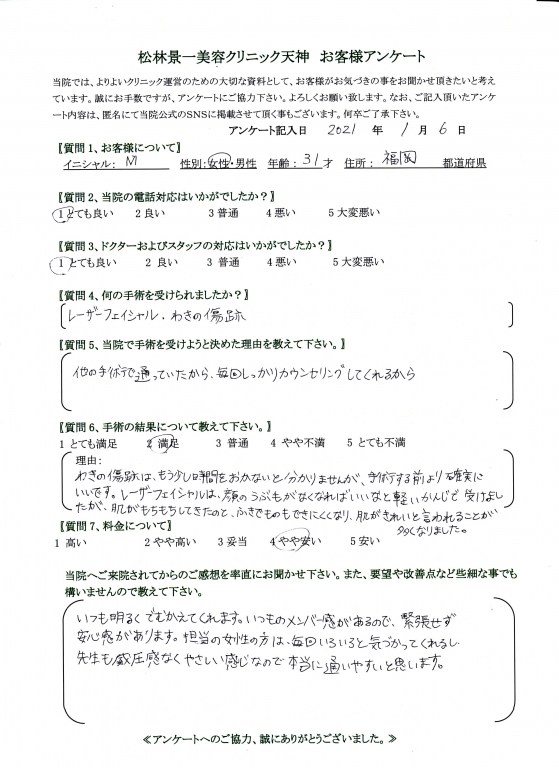 松林景一美容クリニック天神　お客様アンケート
当院では、よりよいクリニック運営のための大切な資料として、お客様がお気づきの事をお聞かせ頂きたいと考え
ています。誠にお手数ですが、アンケートにご協力下さい。よろしくお願い致します。なお、ご記入頂いたアンケ
ート内容は、匿名にて当院公式のSNSに掲載させて頂く事もございます。何卒ご了承下さい。
アンケート記入日　2021　年　1　月　6　日
【質問1、お客様について】
イニシャル：　M　性別：女性・男性　年齢：31才　住所：　福岡　都道府県
【質問2、当院の電話対応はいかがでしたか？】
1 とても良い　2 良い　3 普通　4 悪い　5 大変悪い
【質問3、ドクターおよびスタッフの対応はいかがでしたか？】
1 とても良い　2 良い　3 普通　4 悪い　5 大変悪い
【質問4、何の手術を受けられましたか？】
レーザーフェイシャル、わきの傷跡
【質問5、当院で手術を受けようと決めた理由を教えて下さい。】
他の手術で通っていたから、毎回しっかりカウンセリングしてくれるから
【質問6、手術の結果について教えて下さい。】
1 とても満足　2 満足　3 普通　4 やや不満　5 とても不満
理由：
わきの傷跡は、もう少し時間をおかないと分かりませんが、手術する前より確実に
いいです。レーザーフェイシャルは、顔のうぶ毛がなくなればいいなと軽いかんじで受けまし
たが、肌がもちもちしてきたのと、ふきでものもできにくくなり、肌がきれいと言われることが
多くなりました。
【質問7、料金について】
1 高い　2 やや高い　3 妥当　4 やや安い　5 安い
当院へご来院されてからのご感想を率直にお聞かせ下さい。また、要望や改善点など些細な事でも
構いませんので教えて下さい。
いつも明るくでむかえてくれます。いつものメンバー感があるので、緊張せず
安心感があります。担当の女性の方は、毎回いろいろと気づかってくれるし、
先生も威圧感なくやさしい感じなので本当に通いやすいと思います。
≪アンケートへのご協力、誠にありがとうございました。≫